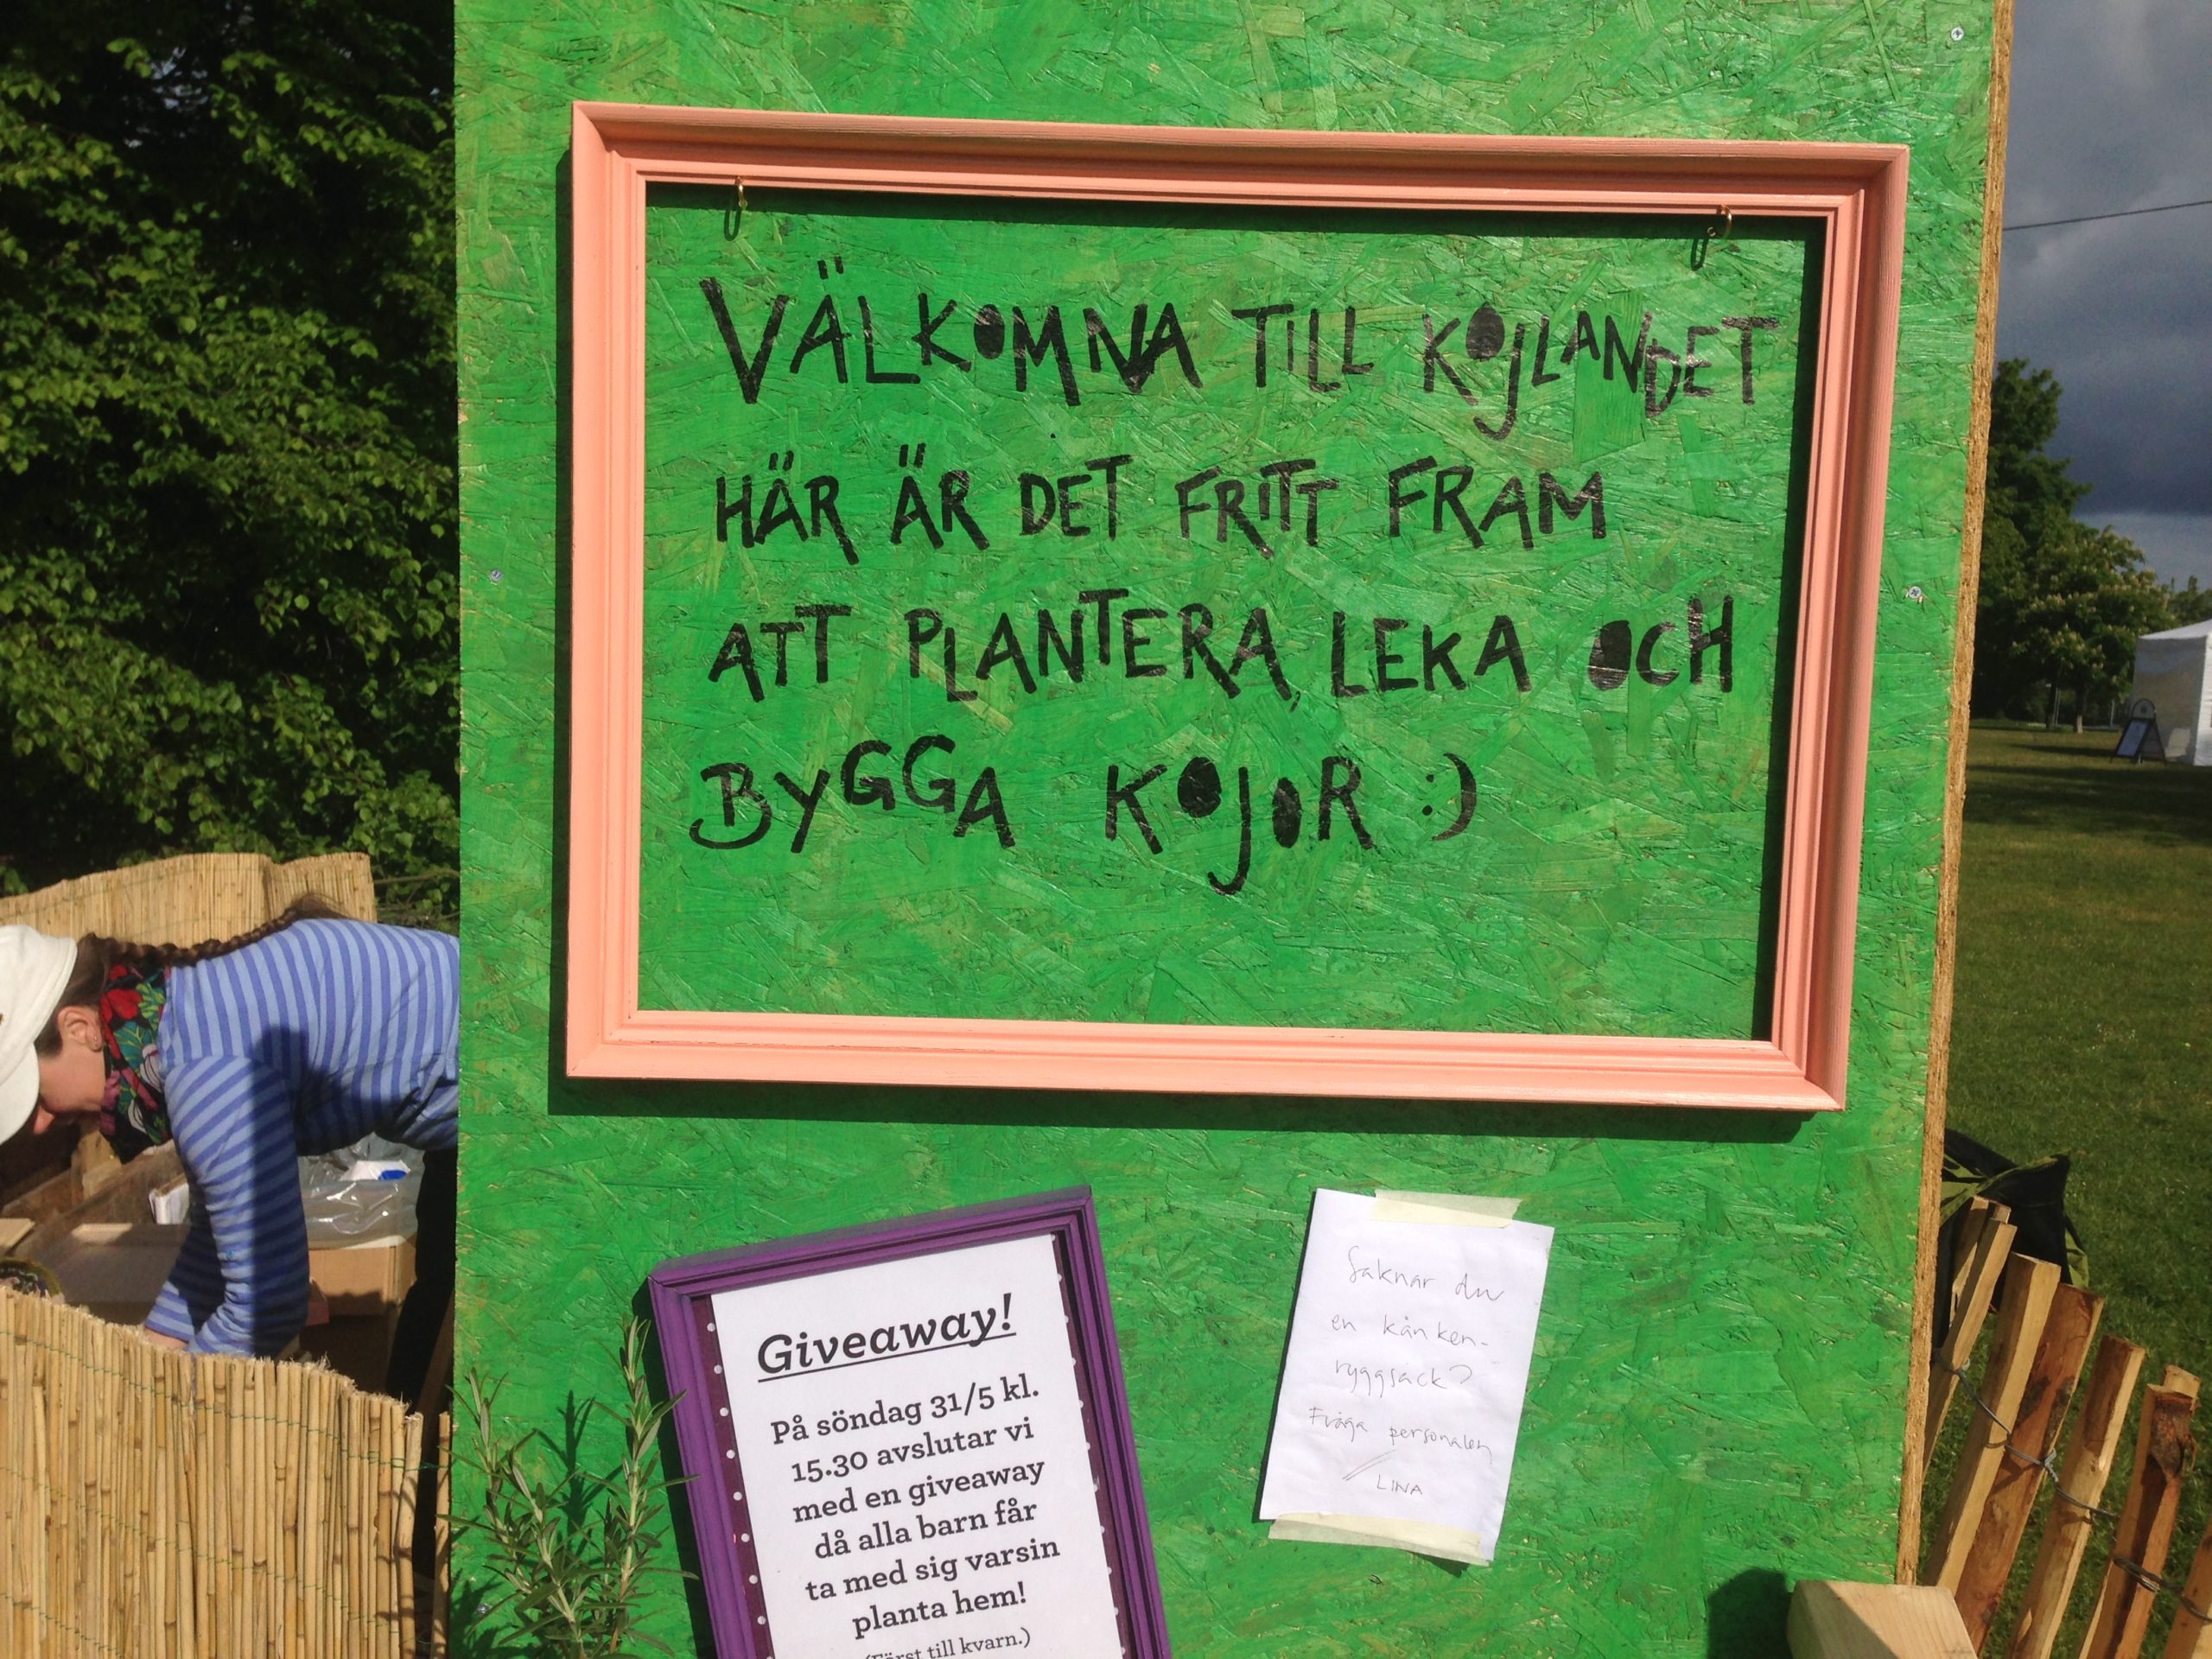 VÄLKOMNA TILL KOJLANDET
HÄR ÄR DET FRITT FRAM
ATT PLANTERA, LEKA OCH
BYGGA KOJOR :)
Giveaway!
På söndag 31/5 kl.
15.30 avslutar vi
med en giveaway
då alla barn får
ta med sig varsin
planta hem!
(Först till kvarn.)
Saknar du
en kånken-
ryggsäck?
Fråga personalen
// LINA